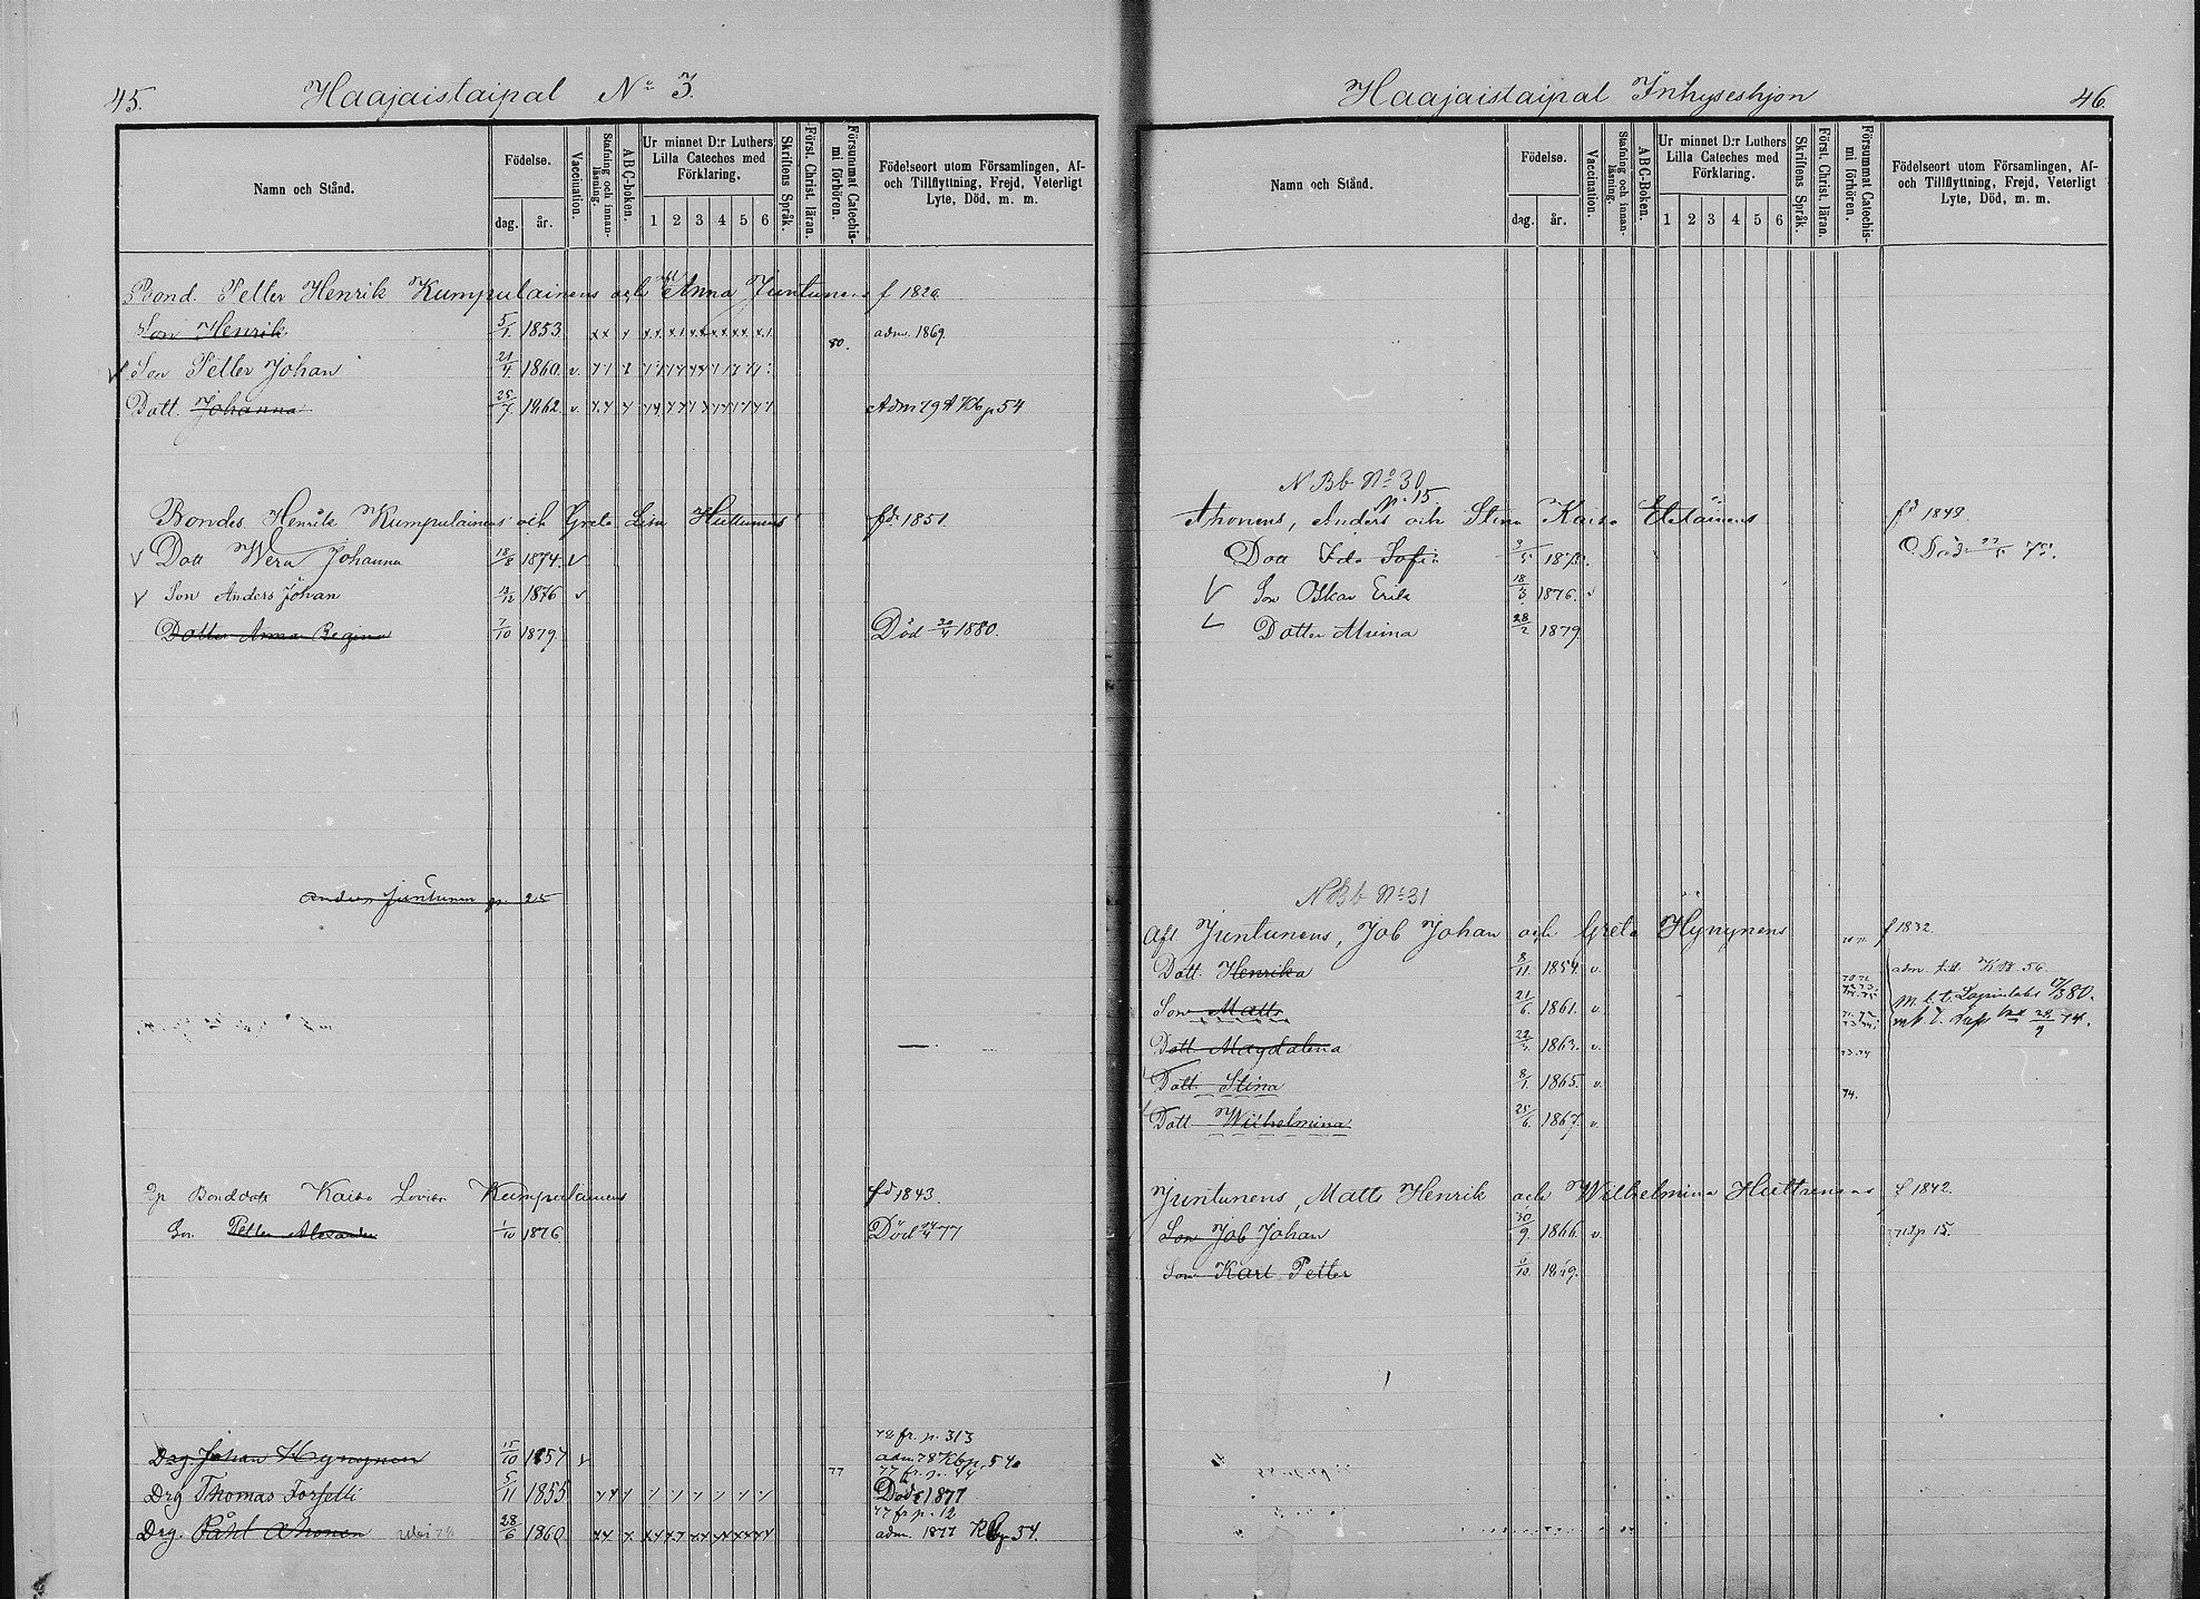 45.
Haajaistaipal No 3.
Namn och Stånd.
Födelse.
dag.
år.
Vaccination.
Stafning och innanläsning.
A B C-boken.
Ur minnet D:r Luthers Lilla Cateches med Förklaring.
1 2 3 4 5 6
Skriftens Språk.
Först. Christ. läran.
Försummat Catechismi förhören.
Födelseort utom Församlingen, Af- och Tillflyttning, Frejd, Veterligt Lyte, Död, m. m.
Bond. Petter Henrik Kumpulainens och Anna Juntunens f 1820.
Son Henrik 5/1. 1853. 80. adm. 1869.
Son Petter Johan 21/4. 1860. v.
Dott. Johanna 25/7 1862. v. Adm 79 Kb p 54
Bondes Henrik Kumpulainens och Greta Lisa Huttunens fd. 1851.
Dott Wera Johanna 18/8 1874. v
Son Anders Johan 1876 v
Dotter Anna Regina 7/10 1879. Död 1880.
Anders Juntunen p. 25
Bonddott Kaisa Lovisa Kumpulainens fd 1843.
Son Petter Alexander 1/10 1876 Död 77
78 fr. p. 313
Drg Johan Hynynen 15/10 1857 v adm 78 Kb p. 54
77 fr. p. 44
Drg Thomas Forselli 5/11 1855 77 Död 1877
77 fr p. 12
Drg. Påhl Ahonen 28/6 1860. adm. 1877 Kb p 54.
Haajaistaipal Inhyseshjon
46.
Namn och Stånd.
Födelse.
dag.
år.
Vaccination.
Stafning och innanläsning.
A B C-Boken.
Ur minnet D:r Luthers Lilla Cateches med Förklaring.
1 2 3 4 5 6
Skriftens Språk.
Först. Christ. läran.
Försummat Catechismi förhören.
Födelseort utom Församlingen, Af- och Tillflyttning, Frejd, Veterligt Lyte, Död, m. m.
N Bb No 30
p. 15
Ahonens, Anders och Stina Kaisa Eteläinens fd 1849.
Dott Ida Sofia 3/5 1873. Död 75.
Son Oskar Erik 18/3 1876. v
Dotter Alvina 28/2 1879.
N Bb No 31
Afl. Juntunens, Job Johan och Greta Hynynens f 1832.
Dott. Henrika 8/11. 1854. v. adm.
Son Matts 21/6. 1861. v. m. b. t. Lapinlaks 80.
Dott Magdalena 1863. v. 73.74
Dott. Stina 8/1. 1865. v. 74.
Dott Wilhelmina 25/6. 1867. v.
Juntunens, Matts Henrik och Wilhelmina Huttunens f 1842.
Son Job Johan 30/9. 1866. v. p 15.
Son Karl Petter 1/10. 1869.